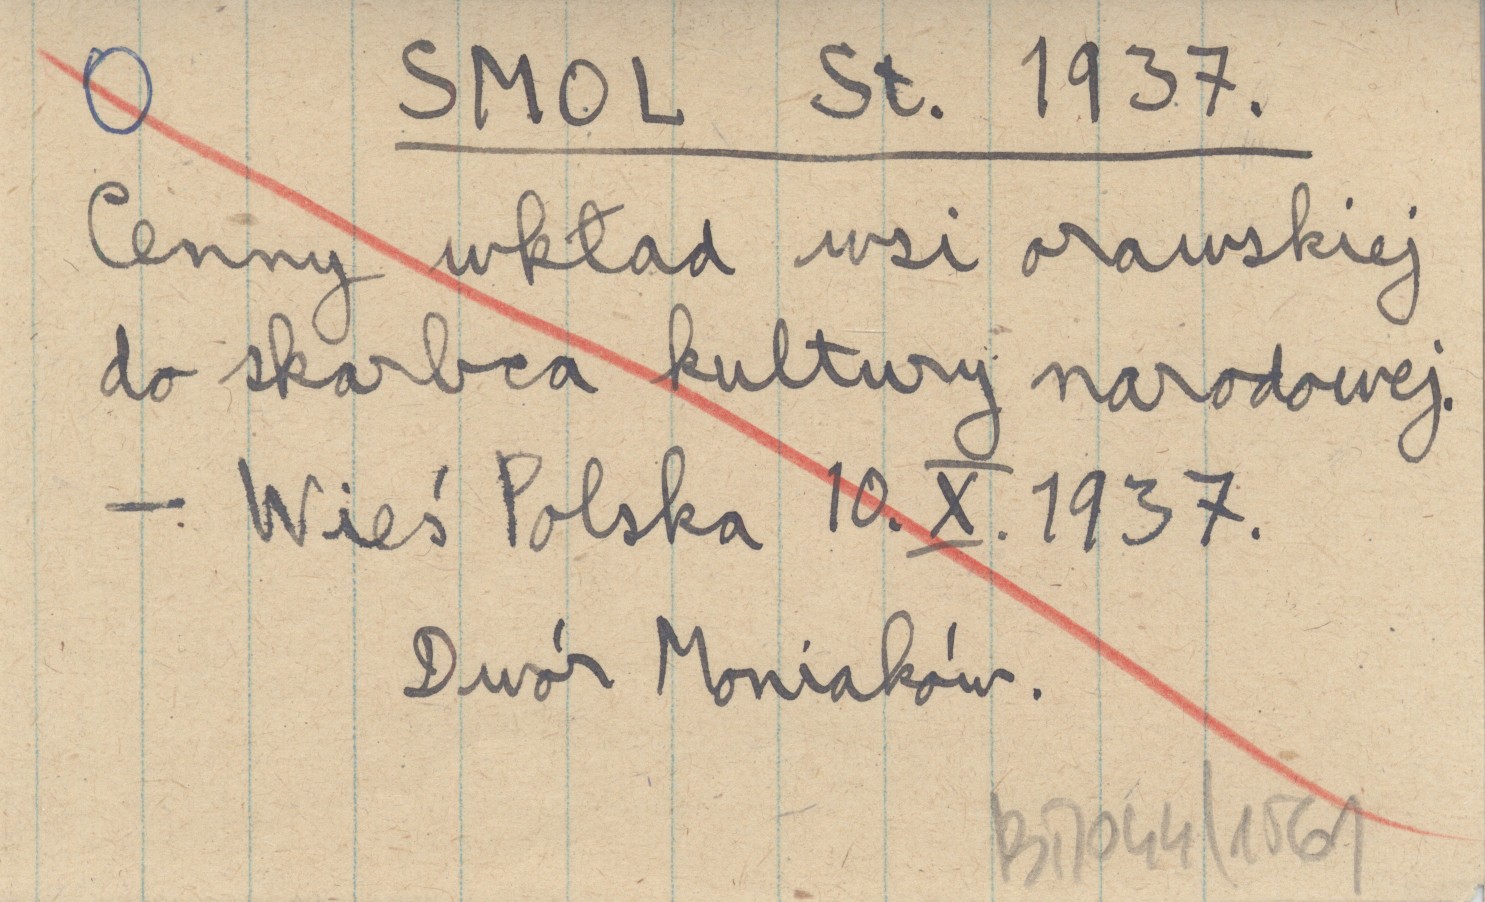 O SMOL St. 1937.
Cenny wkład wsi orawskiej
do skarbca kultury narodowej.
— Wieś Polska 10. X. 1937.
Dwór Moniaków.